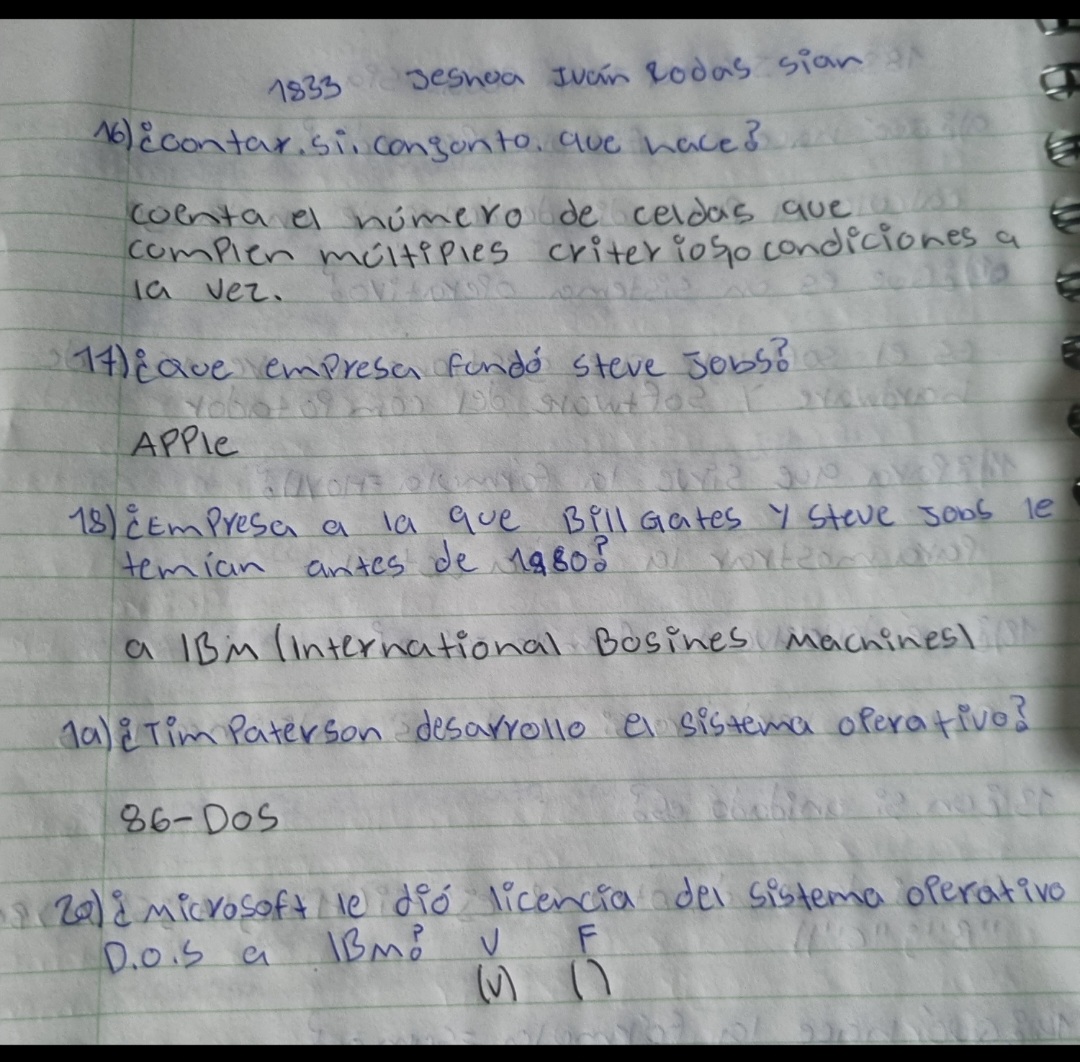 1833 Jeshua Iván Rodas sian
16) ¿contar.si.congunto.que hace?
cuenta el número de celdas que
complen múltiples criterios o condiciones a
la vez.
17) ¿Que empresa fundó Steve Jobs?
APPle
18) ¿Empresa a la que Bill Gates y Steve Jobs le
temian antes de 1980?
a IBM (International Bosines Machines)
19) ¿Tim Paterson desarrollo el sistema operativo?
86-DOS
20) ¿Microsoft le dió licencia del sistema operativo
D.O.S a IBM? V F
(V) ()